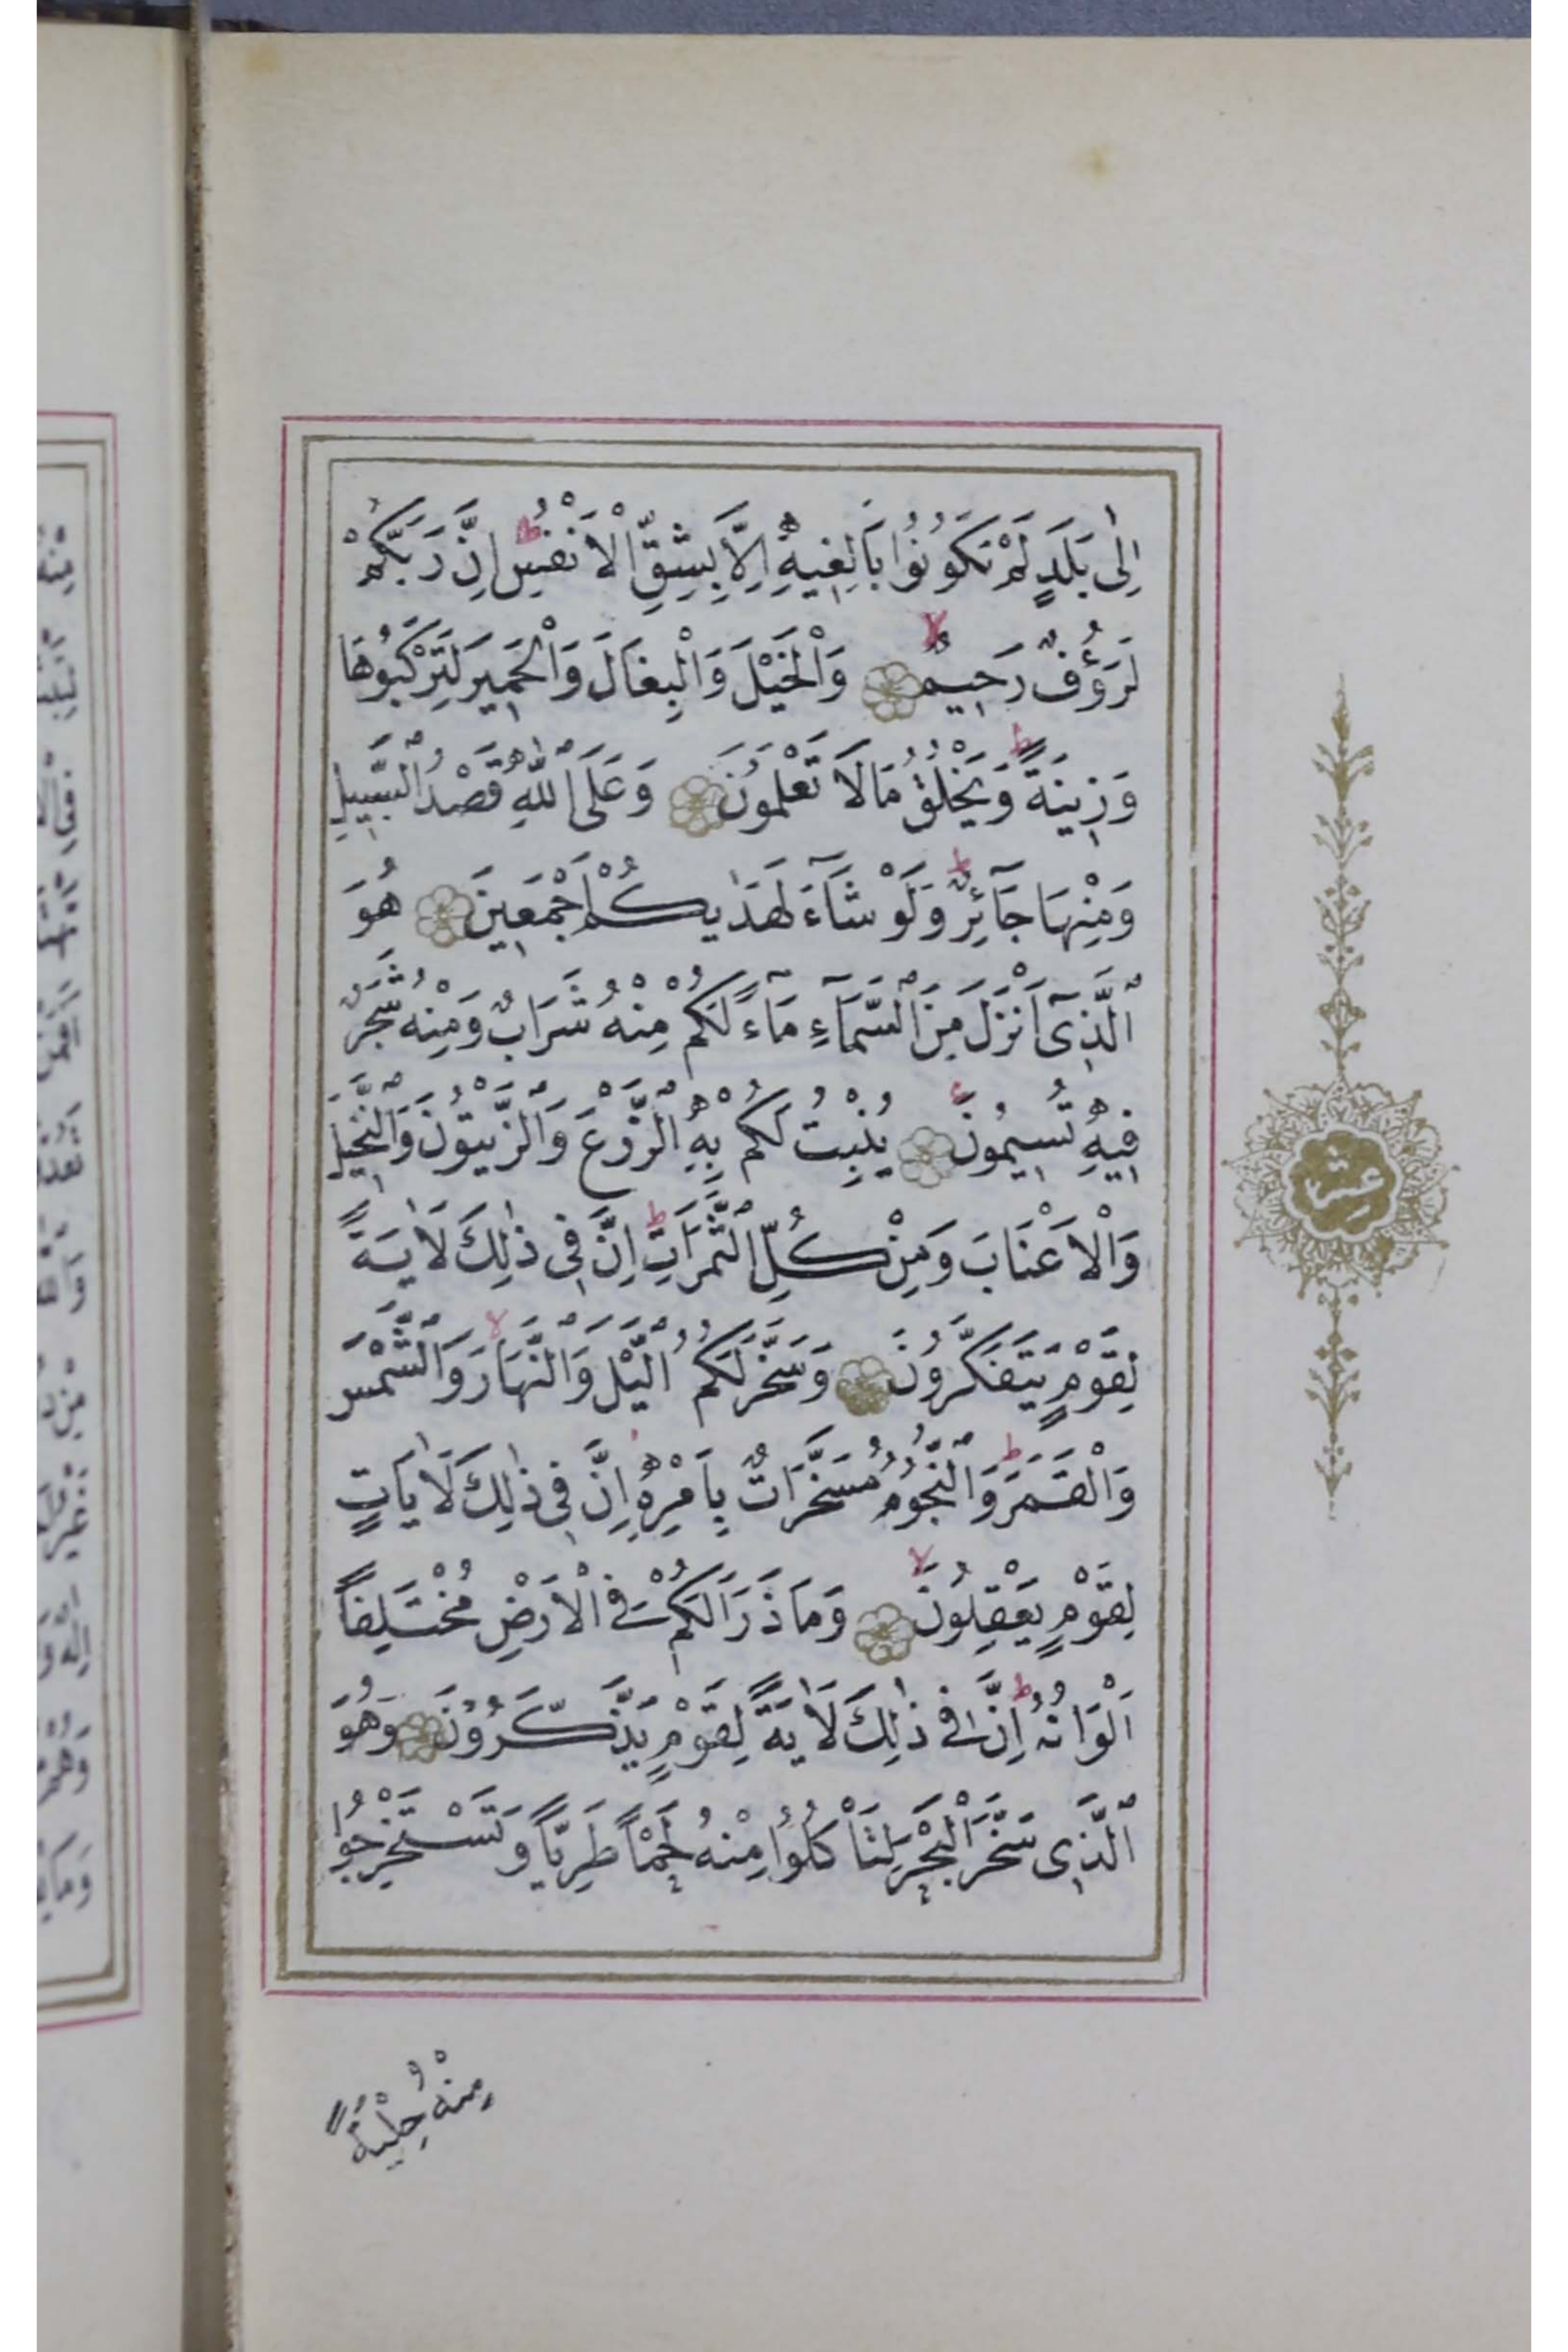 اِلٰى بَلَدٍ لَمْ تَكُونُوا بَالِغِيهِ اِلَّا بِشِقِّ الْاَنْفُسِ ط اِنَّ رَبَّكُمْ
لَرَؤُفٌ رَحِيمٌ لا وَالْخَيْلَ وَالْبِغَالَ وَالْحَمِيرَ لِتَرْكَبُوهَا
وَزِينَةً ط وَيَخْلُقُ مَا لَا تَعْلَمُونَ وَعَلَى اللّٰهِ قَصْدُ السَّبِيلِ
وَمِنْهَا جَآئِرٌ ط وَلَوْ شَآءَ لَهَدٰيكُمْ اَجْمَعِينَ هُوَ
الَّذِىٓ اَنْزَلَ مِنَ السَّمَآءِ مَآءً لَكُمْ مِنْهُ شَرَابٌ وَمِنْهُ شَجَرٌ
فِيهِ تُسِيمُونَ يُنْبِتُ لَكُمْ بِهِ الزَّرْعَ وَالزَّيْتُونَ وَالنَّخِيلَ
وَالْاَعْنَابَ وَمِنْ كُلِّ الثَّمَرَاتِ ط اِنَّ فِى ذٰلِكَ لَاٰيَةً
لِقَوْمٍ يَتَفَكَّرُونَ وَسَخَّرَ لَكُمُ الَّيْلَ وَالنَّهَارَ لا وَالشَّمْسَ
وَالْقَمَرَ ط وَالنُّجُومُ مُسَخَّرَاتٌ بِاَمْرِهِ اِنَّ فِى ذٰلِكَ لَاٰيَاتٍ
لِقَوْمٍ يَعْقِلُونَ لا وَمَا ذَرَاَ لَكُمْ فِى الْاَرْضِ مُخْتَلِفًا
اَلْوَانُهُ ط اِنَّ فِى ذٰلِكَ لَاٰيَةً لِقَوْمٍ يَذَّكَّرُونَ وَهُوَ
الَّذِى سَخَّرَ الْبَحْرَ لِتَاْكُلُوا مِنْهُ لَحْمًا طَرِيًّا وَتَسْتَخْرِجُوا
مِنْهُ حِلْيَةً
عشر